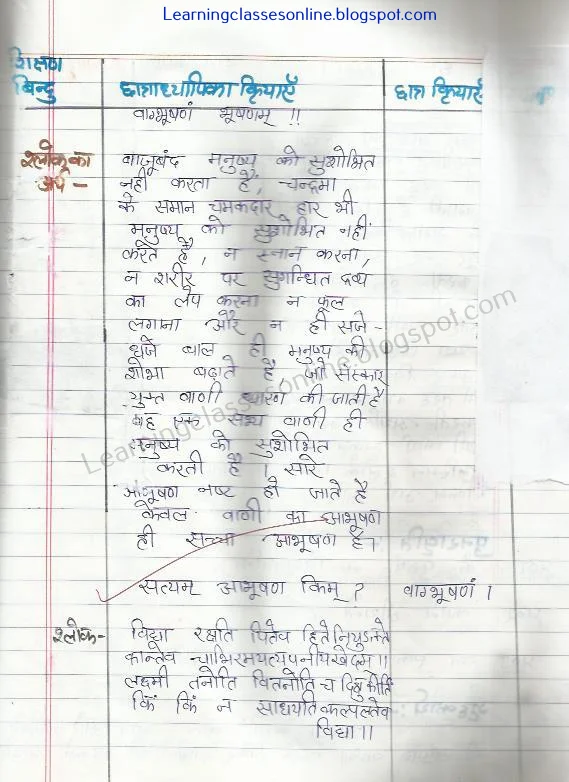 Learningclassesonline.blogspot.com
शिक्षण बिन्दु
छात्राध्यापिका क्रियाएँ
छात्र क्रियाएँ
वाग्भूषणं भूषणम् !!
श्लोक का अर्थ -
बाजूबंद मनुष्य को सुशोभित
नही करता है, चन्द्रमा
के समान चमकदार हार भी
मनुष्य को सुशोभित नहीं
करते है, न स्नान करना,
न शरीर पर सुगन्धित द्रव्य
का लेप करना न फूल
लगाना और न ही सजे-
धजे बाल ही मनुष्य की
शोभा बढ़ाते है जो संस्कार
युक्त वाणी धारण की जाती है
वह एक सभ्य वाणी ही
मनुष्य को सुशोभित
करती है। सारे
आभूषण नष्ट हो जाते है
केवल वाणी का आभूषण
ही सच्चा आभूषण है।
सत्यम् आभूषण किम् ? वाग्भूषणं ।
श्लोक- विद्या रक्षति पितेव हिते नियुङक्ते
कान्तेव चाभिरमयत्यपनीय खेदम ॥
लक्ष्मी तनोति वितनोति च दिक्षु कीर्ति
किं किं न साधयति कल्पलतेव
विद्या ॥
Learningclassesonline.blogspot.com